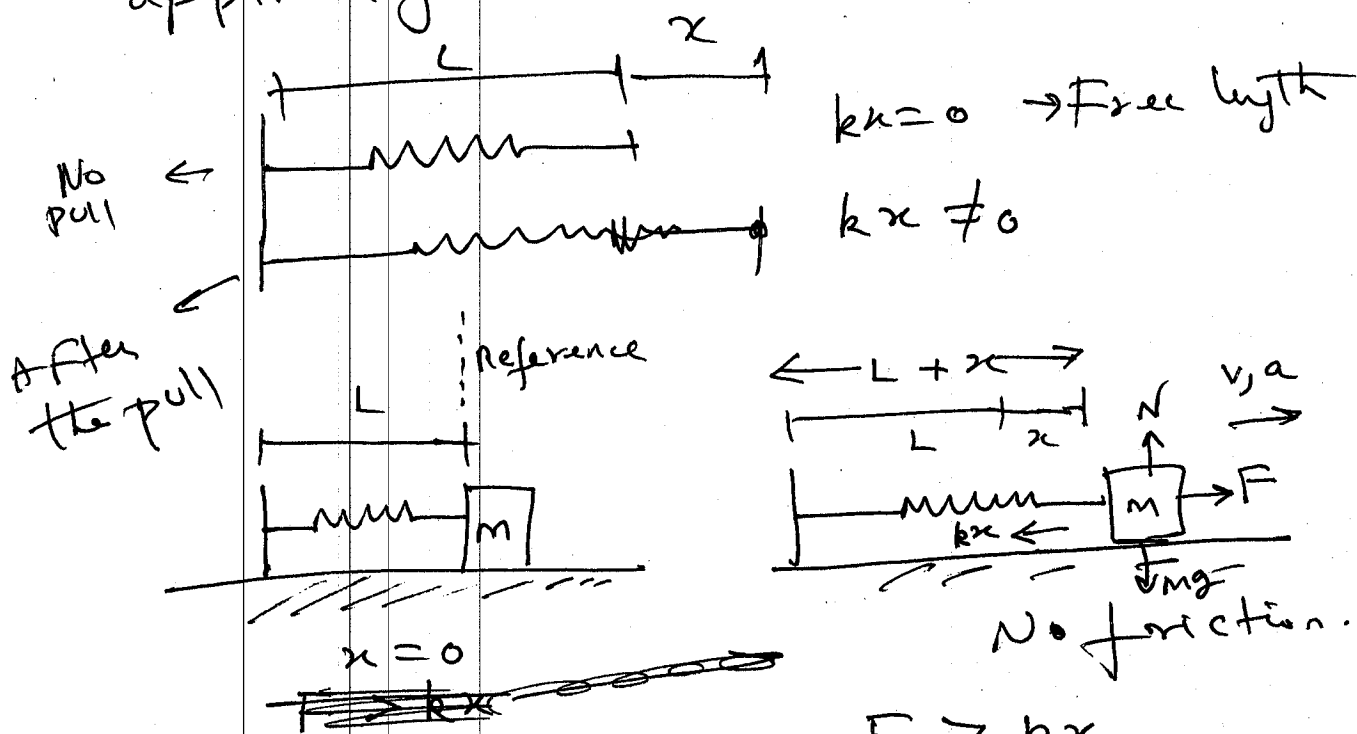 L x
kx = 0 → Free length
No pull ←
kx ≠ 0
After the pull
Reference
L
← L + x →
v, a
L x
N
m
m
F
kx ←
mg
No friction.
x = 0
F > kx